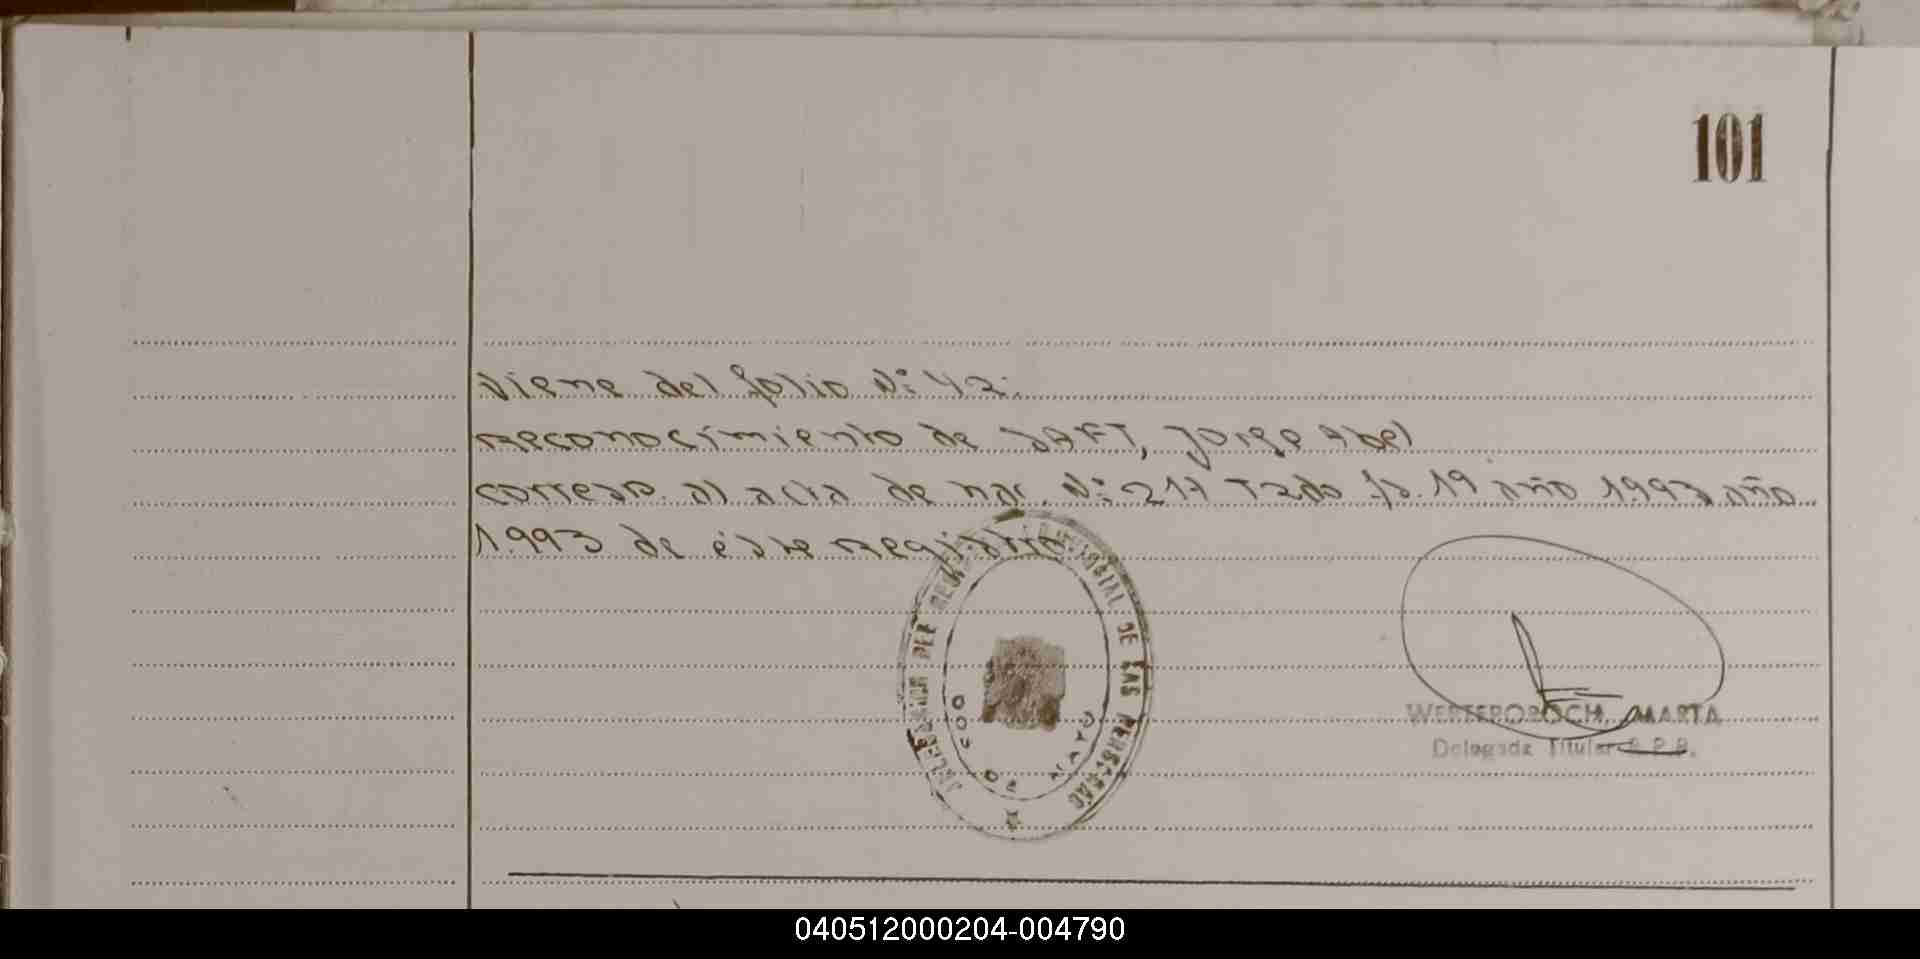 101
Viene del folio Nº 42.
reconocimiento de DAFT, Jorge Abel
corresp. al acta de nac. Nº 217 T2do fº. 19 año 1.993 año
1.993 de éste registro
DELEGACION DEL REG. PROVINCIAL DE LAS PERSONAS
DOS DE MAYO
WERTEROBOCH, MARTA
Delegada Titular R.P.P.
040512000204-004790